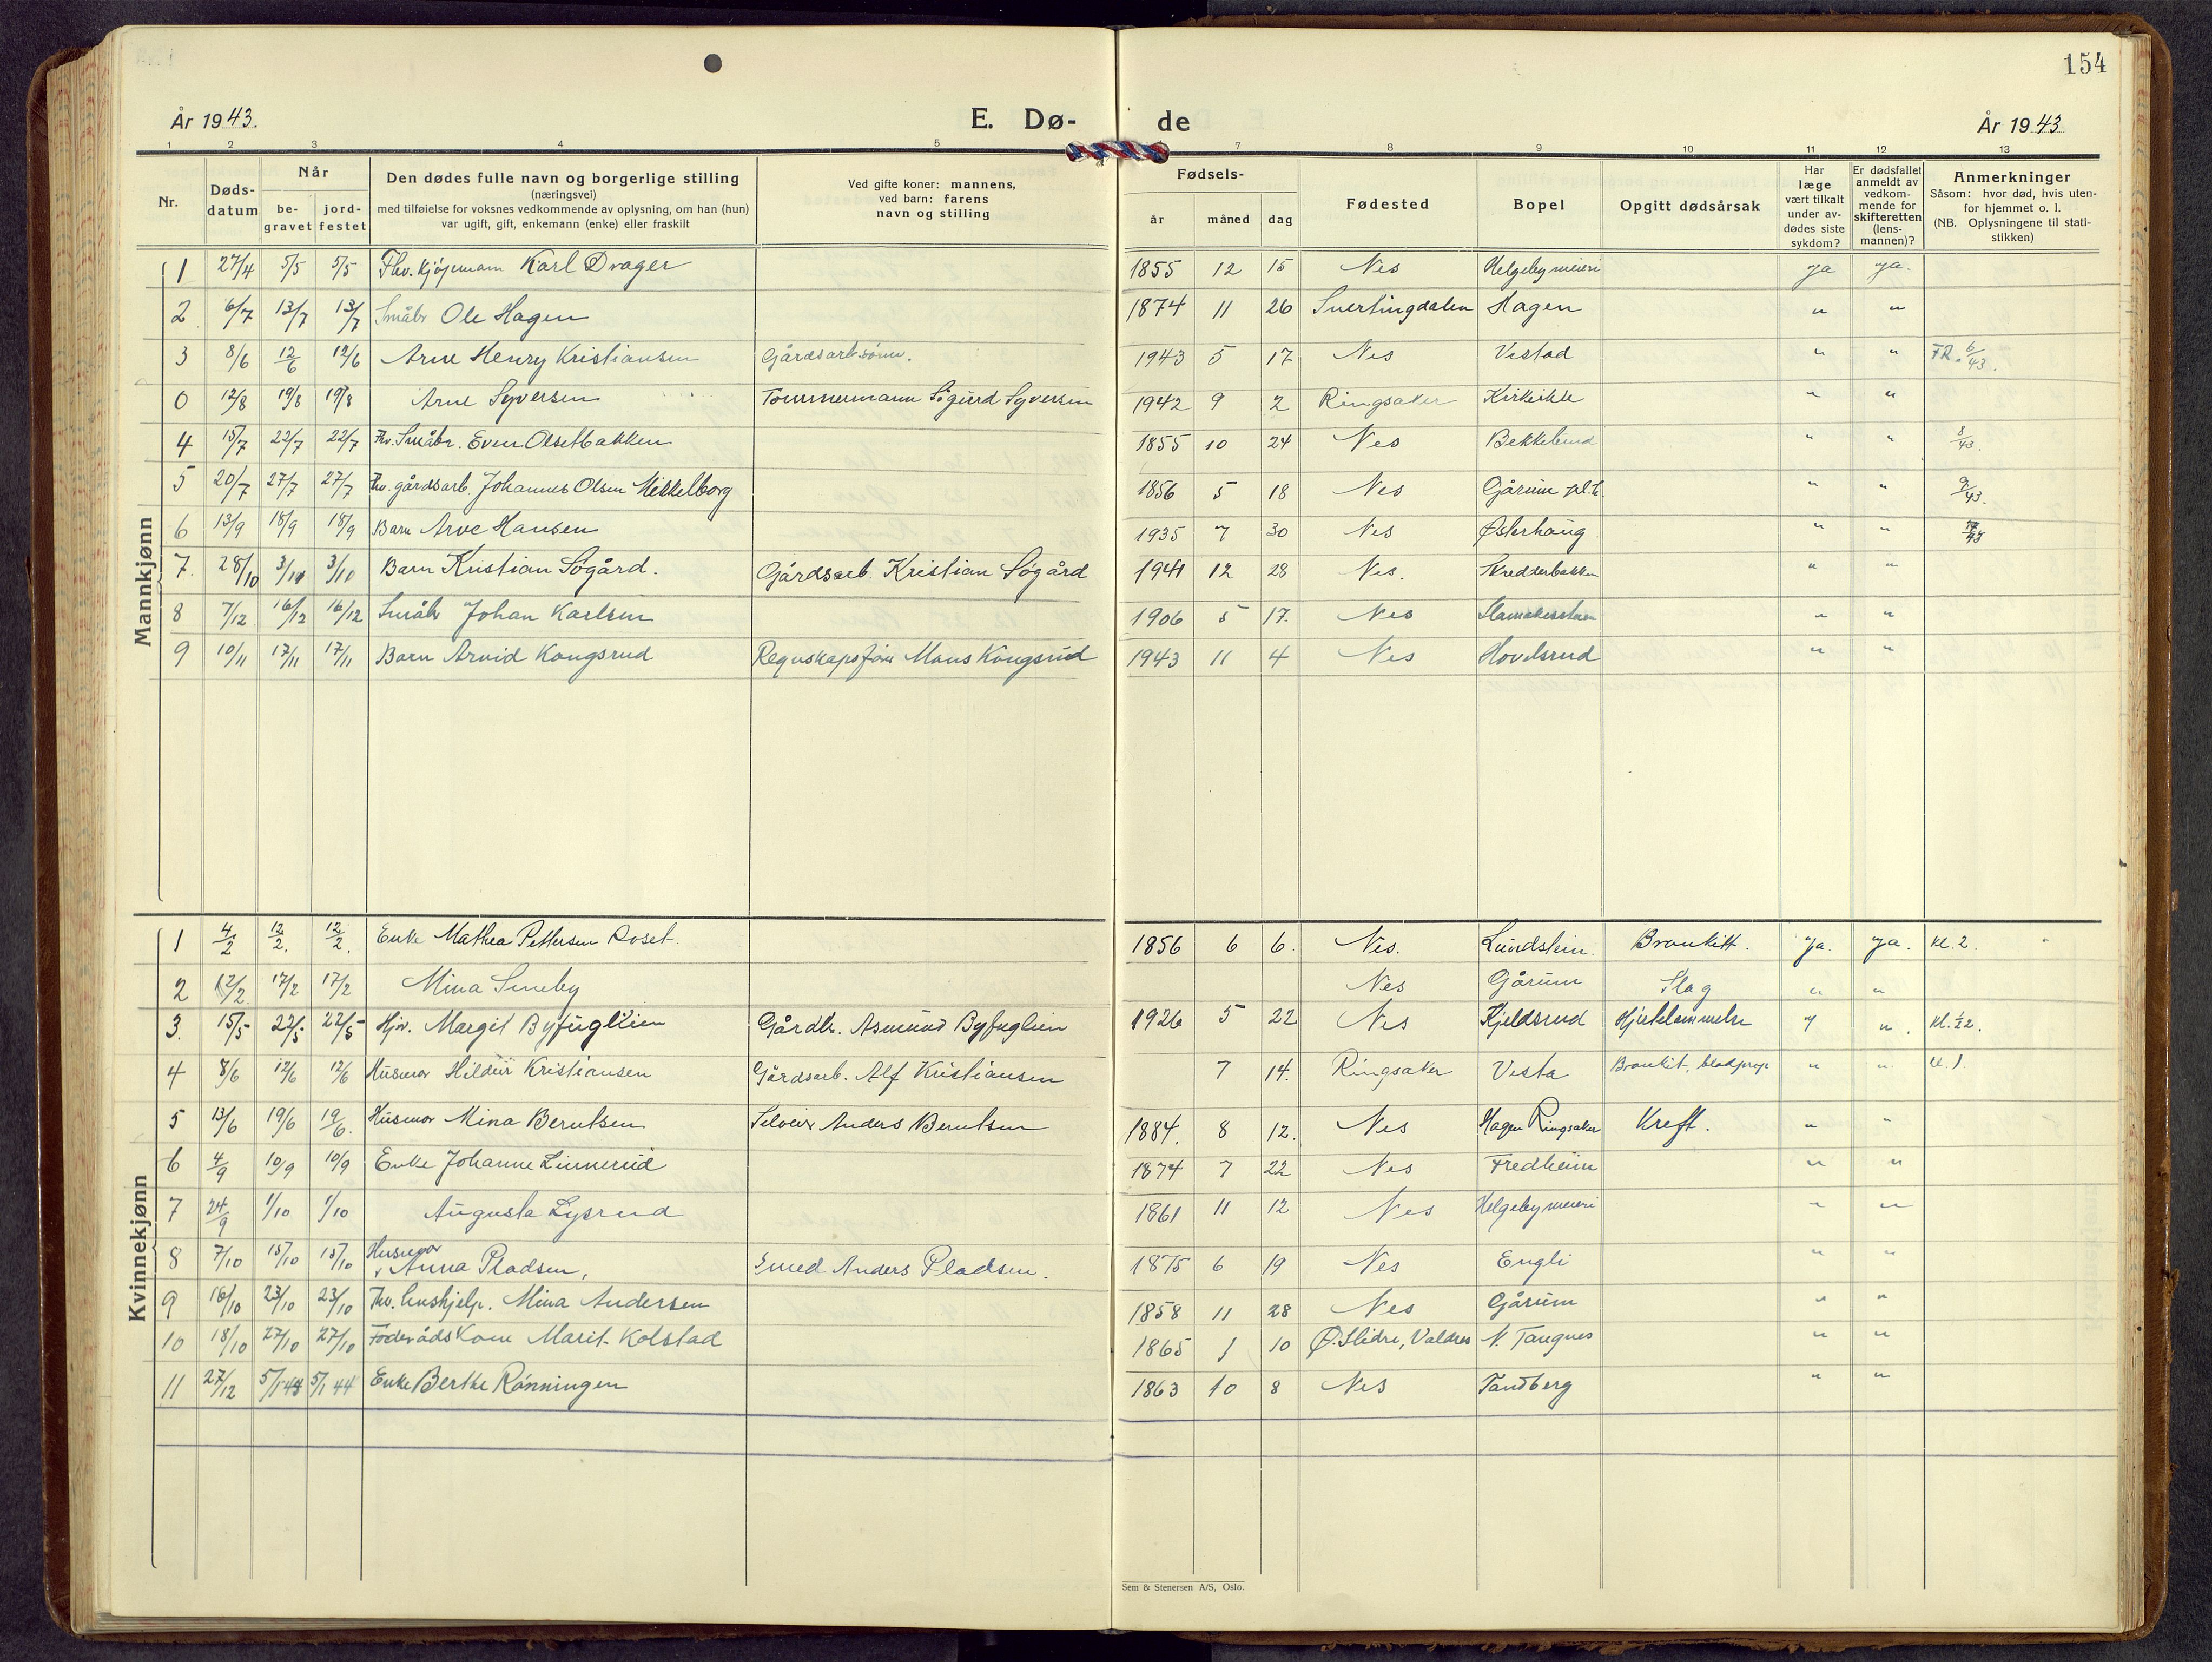 154
År 1943.
E. Dø-
de
År 1943
1 2 3 4 5 7 8 9 10 11 12 13
Nr.
Døds-
datum
Når
be-
gravet
jord-
festet
Den dødes fulle navn og borgerlige stilling
(næringsvei)
med tilføielse for voksnes vedkommende av oplysning, om han (hun)
var ugift, gift, enkemann (enke) eller fraskilt
Ved gifte koner: mannens,
ved barn: farens
navn og stilling
Fødsels-
år måned dag
Fødested
Bopel
Opgitt dødsårsak
Har
læge
vært tilkalt
under av-
dødes siste
sykdom?
Er dødsfallet
anmeldt av
vedkom-
mende for
skifteretten
(lens-
mannen)?
Anmerkninger
Såsom: hvor død, hvis uten-
for hjemmet o. l.
(NB. Oplysningene til stati-
stikken)
Mannkjønn
1 27/4 5/5 5/5 Fhv. Kjøpmann Karl Drager 1855 12 15 Nes Helgeby meieri ja ja.
2 6/7 13/7 13/7 Småbr Ole Hagen 1874 11 26 Snertingdalen Hagen " "
3 8/6 12/6 12/6 Arne Henry Kristiansen Gårdsarb. sønn. 1943 5 17 Nes Vestad " " FR. 6/43.
0 12/8 19/8 19/8 Arne Syversen Tømmermann Sigurd Syversen 1942 9 2 Ringsaker Kirkeikke " "
4 15/7 22/7 22/7 Fhv. Småbr. Even Olsetbakken 1855 10 24 Nes Bekkelund " " 8/43.
5 20/7 27/7 27/7 Fhv. gårdsarb. Johannes Olsen Mikkelborg 1856 5 18 Nes Gårum pl.h. " " 9/43.
6 13/9 18/9 18/9 Barn Arve Hansen 1935 7 30 Nes Østerhaug. " "
7. 28/10 3/11 3/10 Barn Kristian Søgård. Gårdsarb. Kristian Søgård 1941 12 28 Nes. Skredderbakken " "
8 7/12 16/12 16/12 Småbr Johan Karlsen 1906 5 17. Nes " "
9 10/11 17/11 17/11 Barn Arvid Kongsrud Regnskapsfører Mons Kongsrud 1943 11 4 Nes Hovelsrud " "
Kvinnekjønn
1 4/2 12/2. 12/2. Enke Mathea Pettersen Roset. 1856 6 6. Nes. Lundstein. Bronkitt. ja. ja. kl. 2.
2 12/2. 17/2 17/2 Mina Smeby Nes Gårum Slag " "
3. 15/5 22/5 22/5 Hjv. Margit Byfuglien Gårdbr. Asmund Byfuglien 1926 5 22 Nes Kjeldsrud Hjertelammelse " " kl. 1/22.
4 8/6 12/6 12/6 Husmor Hildur Kristiansen Gårdsarb. Alf Kristiansen 7 14. Ringsaker Vesta Bronkit, blodprop " " kl. 1.
5 13/6 19/6 19/6. Husmor Mina Berntsen Selveier Anders Berntsen 1884. 8 12. Nes Hagen Ringsaker Kreft. " "
6 4/9 10/9 10/9 Enke Johanne Linnerud 1874 7 22 Nes Fredheim " "
7 24/9 1/10 1/10 Augusta Lysrud 1861 11 12 Nes Helgeby meieri " "
8 7/10 15/10 15/10 Husmor Anna Pladsen, Smed Anders Pladsen. 1875 6 19 Nes Engli " "
9 16/10 23/10 23/10 Fhv. hushjelp. Mina Andersen 1858 11 28 Nes Gårum " "
10 18/10 27/10 27/10 Føderådskone Marit Kolstad 1865 1 10 Ø. Slidre, Valdres N. Tangnes " "
11 27/12 5/1 44 5/1 44 Enke Berthe Rønningen 1863 10 8 Nes Tandberg " "
Sem & Stenersen A/S, Oslo.